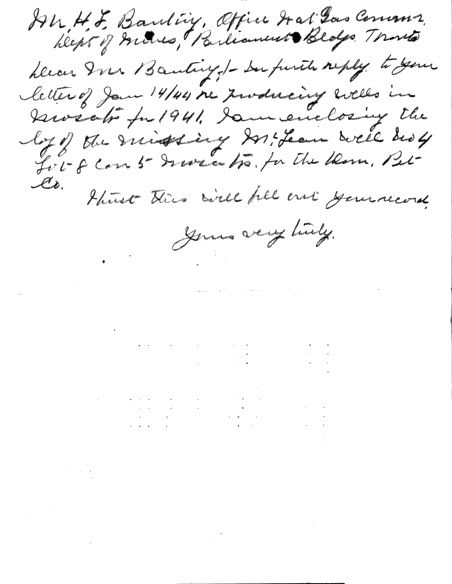 Mr H. L. Banting, Office Nat Gas Commr.
Dept of Mines, Parliament Bldgs Toronto
Dear Mr Banting,/- In further reply to your
letter of Jan 14/44 re producing wells in
Mosa tp for 1941, I am enclosing the
log of the missing McLean well No 4
Lot 8 Con 5 Mosa tp. for the Dom. Pet
Co.
I trust this will fill out your record,
Yours very truly.